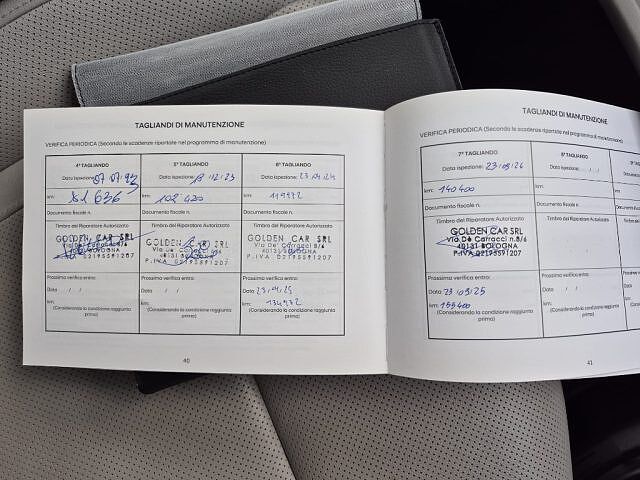 TAGLIANDI DI MANUTENZIONE
VERIFICA PERIODICA (Secondo le scadenze riportate nel programma di manutenzione)
4° TAGLIANDO
Data ispezione: 07.07.93
km: 81 636
Documento fiscale n.
Timbro del Riparatore Autorizzato
GOLDEN CAR SRL
BOLOGNA
02193591207
Prossima verifica entro:
Data / /
km:
(Considerando la condizione raggiunta
prima)
5° TAGLIANDO
Data ispezione: 12.23
km: 102 420
Documento fiscale n.
Timbro del Riparatore Autorizzato
GOLDEN CAR SRL
Via De Carracci
40131 BOLOGNA
P.IVA 02193591207
Prossima verifica entro:
Data / /
km:
(Considerando la condizione raggiunta
prima)
6° TAGLIANDO
Data ispezione: 23.04.24
km: 119972
Documento fiscale n.
Timbro del Riparatore Autorizzato
GOLDEN CAR SRL
Via De Carracci n.8/6
40131 BOLOGNA
P.IVA 02193591207
Prossima verifica entro:
Data 23/04/25
km: 134972
(Considerando la condizione raggiunta
prima)
40
TAGLIANDI DI MANUTENZIONE
VERIFICA PERIODICA (Secondo le scadenze riportate nel programma di manutenzione)
7° TAGLIANDO
Data ispezione: 23/09/24
km: 140400
Documento fiscale n.
Timbro del Riparatore Autorizzato
GOLDEN CAR SRL
Via De Carracci n.8/6
40131 BOLOGNA
P.IVA 02193591207
Prossima verifica entro:
Data 23/09/25
km: 155400
(Considerando la condizione raggiunta
prima)
8° TAGLIANDO
Data ispezione: / /
km:
Documento fiscale n.
Timbro del Riparatore Autorizzato
Prossima verifica entro:
Data / /
km:
(Considerando la condizione raggiunta
prima)
41